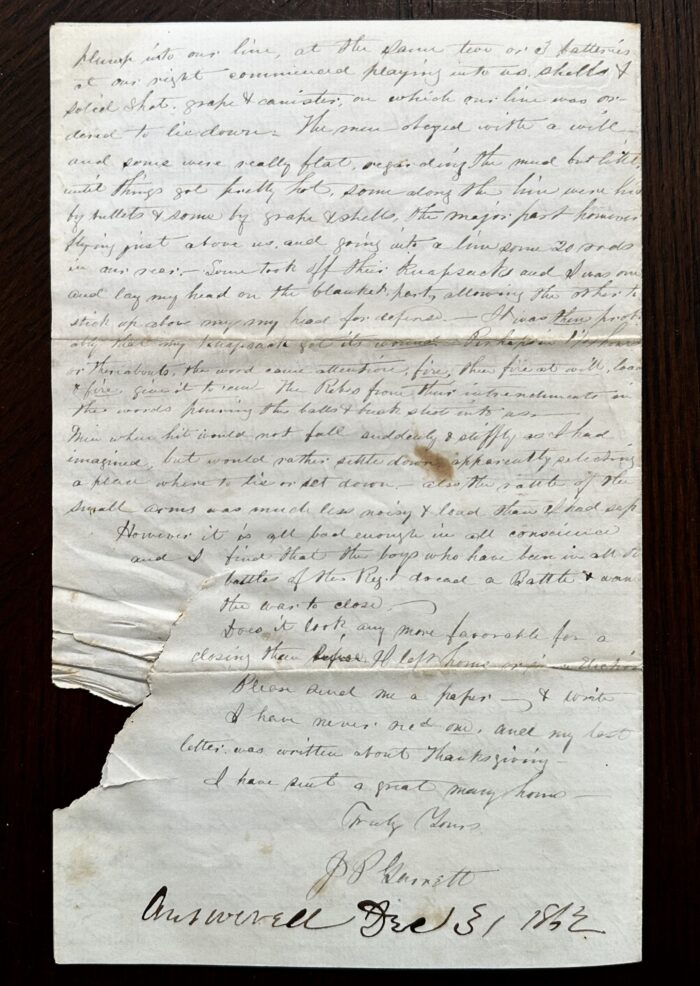 plump into our line, at the same two or 3 batteries
at our right commenced playing into us, shells &
solid shot, grape & canister, on which our line was or-
dered to lie down – The men obeyed with a will
and some were really flat, regarding the mud but little
until things got pretty hot, some along the line were hit
by bullets & some by grape & shells, the major part however
flying just above us, and going into a line some 20 rods
in our rear. – Some took off their knapsacks and I was one
and lay my head on the blanket part, allowing the other to
stick up above my my head for defense. – It was then prob-
ably that my knapsack got its wound – Perhaps
or thereabouts, the word came attention, fire, then fire at will, load
& fire, give it to em The Rebs from their intrenchments in
the woods pouring the balls & buck shot into us. –
Men when hit would not fall suddenly & stiffly as I had
imagined, but would rather settle down, apparently selecting
a place where to lie or set down – also the rattle of the
small arms was much less noisy & loud than I had sup
However it is all bad enough in all conscience
and I find that the boys who have been in all the
battles of the Regt dread a Battle & want
the war to close –
Does it look any more favorable for a
closing than I left home
Please send me a paper – & write
I have never recd one, and my last
letter was written about Thanksgiving –
I have sent a great many home –
Truly Yours
J P Garrett
Answered Dec 31 1862